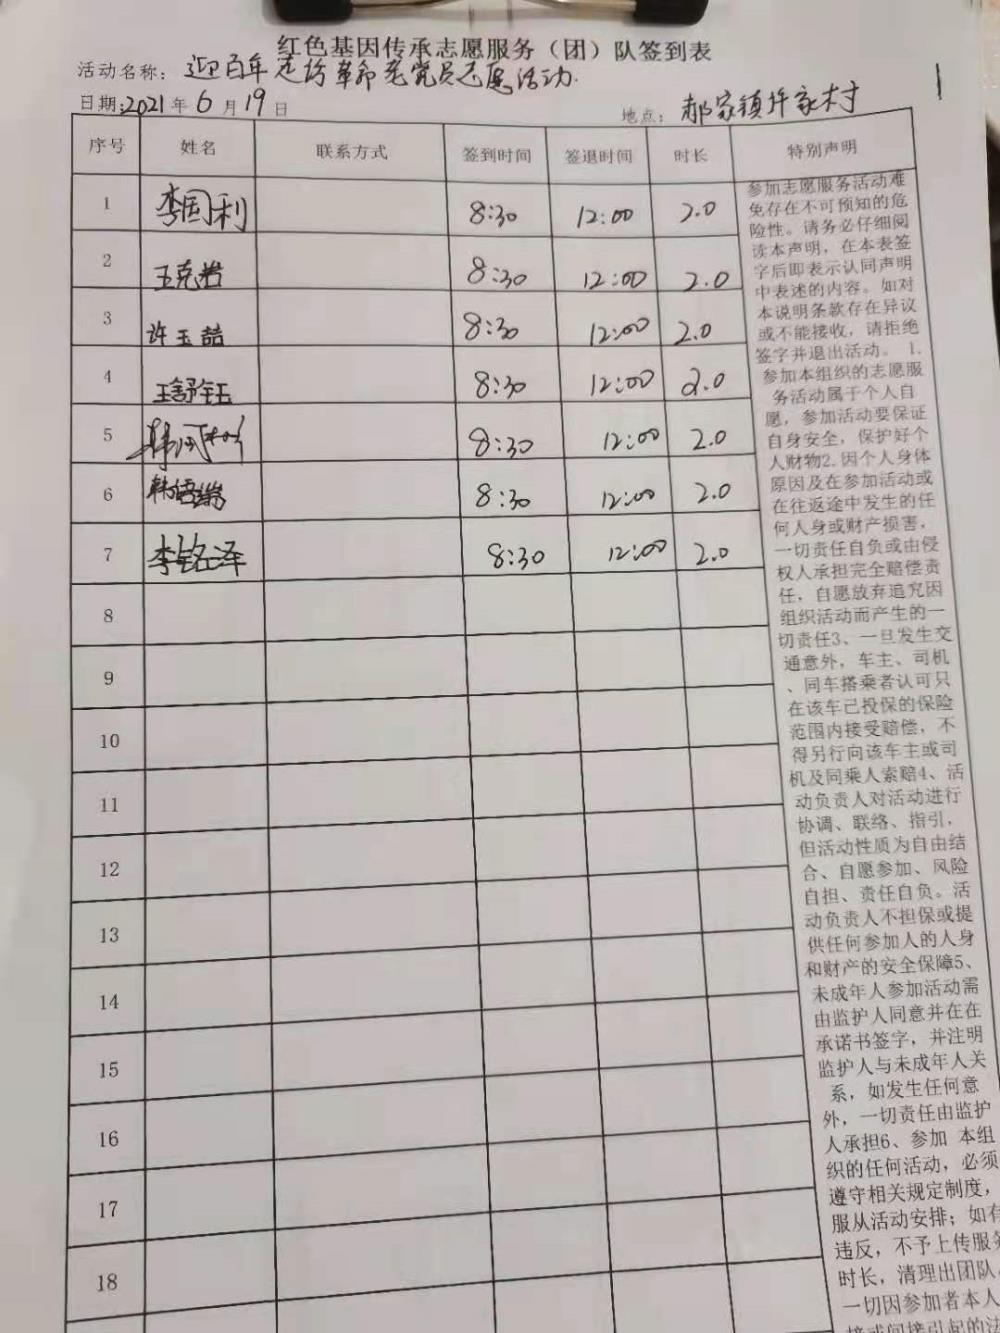 红色基因传承志愿服务（团）队签到表
活动名称：迎百年走访革命老党员志愿活动
日期：2021年6月19日
地点：郝家镇许家村
序号 姓名 联系方式 签到时间 签退时间 时长 特别声明
1 李国利 8:30 12:00 2.0
2 王克岩 8:30 12:00 2.0
3 许玉喆 8:30 12:00 2.0
4 王舒钰 8:30 12:00 2.0
5 8:30 12:00 2.0
6 韩 8:30 12:00 2.0
7 李铭泽 8:30 12:00 2.0
8
9
10
11
12
13
14
15
16
17
18
参加志愿服务活动难
免存在不可预知的危
险性。请务必仔细阅
读本声明，在本表签
字后即表示认同声明
中表述的内容。如对
本说明条款存在异议
或不能接收，请拒绝
签字并退出活动。 1.
参加本组织的志愿服
务活动属于个人自
愿，参加活动要保证
自身安全，保护好个
人财物2.因个人身体
原因及在参加活动或
在往返途中发生的任
何人身或财产损害，
一切责任自负或由侵
权人承担完全赔偿责
任，自愿放弃追究因
组织活动而产生的一
切责任3、一旦发生交
通意外，车主、司机
、同车搭乘者认可只
在该车已投保的保险
范围内接受赔偿，不
得另行向该车主或司
机及同乘人索赔4、活
动负责人对活动进行
协调、联络、指引，
但活动性质为自由结
合、自愿参加、风险
自担、责任自负。活
动负责人不担保或提
供任何参加人的人身
和财产的安全保障5、
未成年人参加活动需
由监护人同意并在在
承诺书签字，并注明
监护人与未成年人关
系，如发生任何意
外，一切责任由监护
人承担6、参加 本组
织的任何活动，必须
遵守相关规定制度，
服从活动安排；如有
违反，不予上传服务
时长，清理出团队。
一切因参加者本人
接或间接引起的法